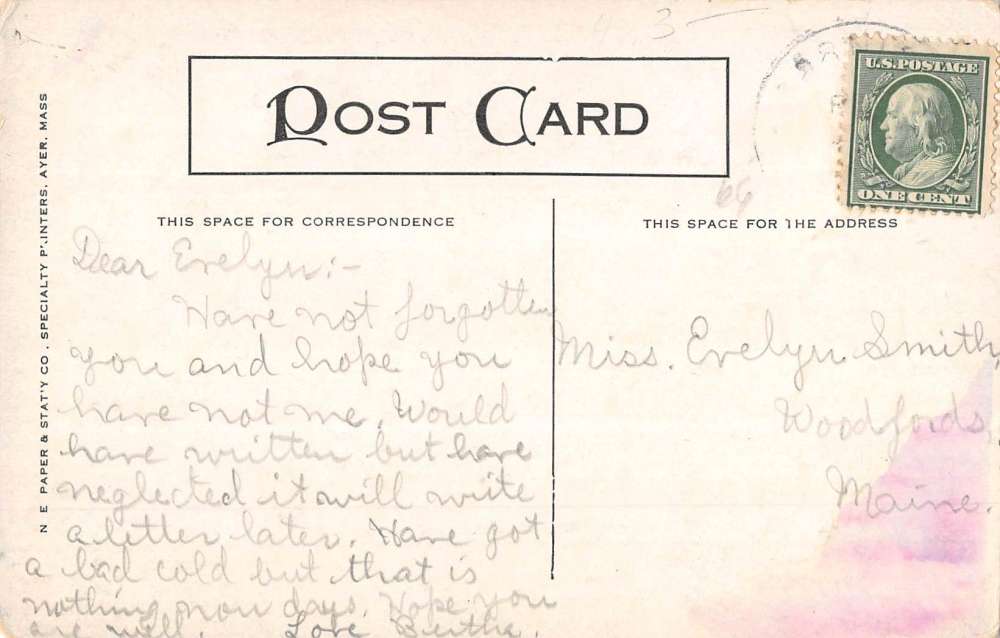 POST CARD
U.S. POSTAGE
ONE CENT
THIS SPACE FOR CORRESPONDENCE
THIS SPACE FOR THE ADDRESS
N E PAPER & STAT'Y CO. SPECIALTY PRINTERS, AYER, MASS
Dear Evelyn:-
Have not forgotten
you and hope you
have not me. Would
have written but have
neglected it will write
a letter later. Have got
a bad cold but that is
nothing now days. Hope you
are well. Love Bertha.
Miss. Evelyn Smith,
Woodfords,
Maine.